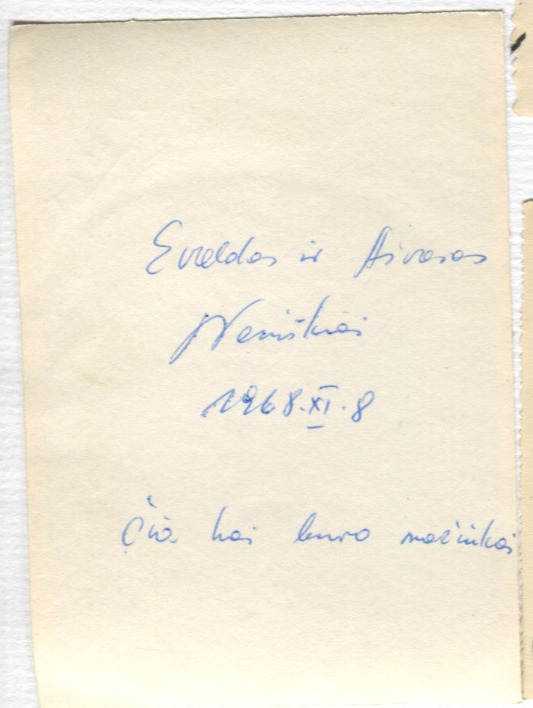 Evaldas ir Aivaras
Neniškiai
1968.XI.8
Čia kai buvo mažiukai